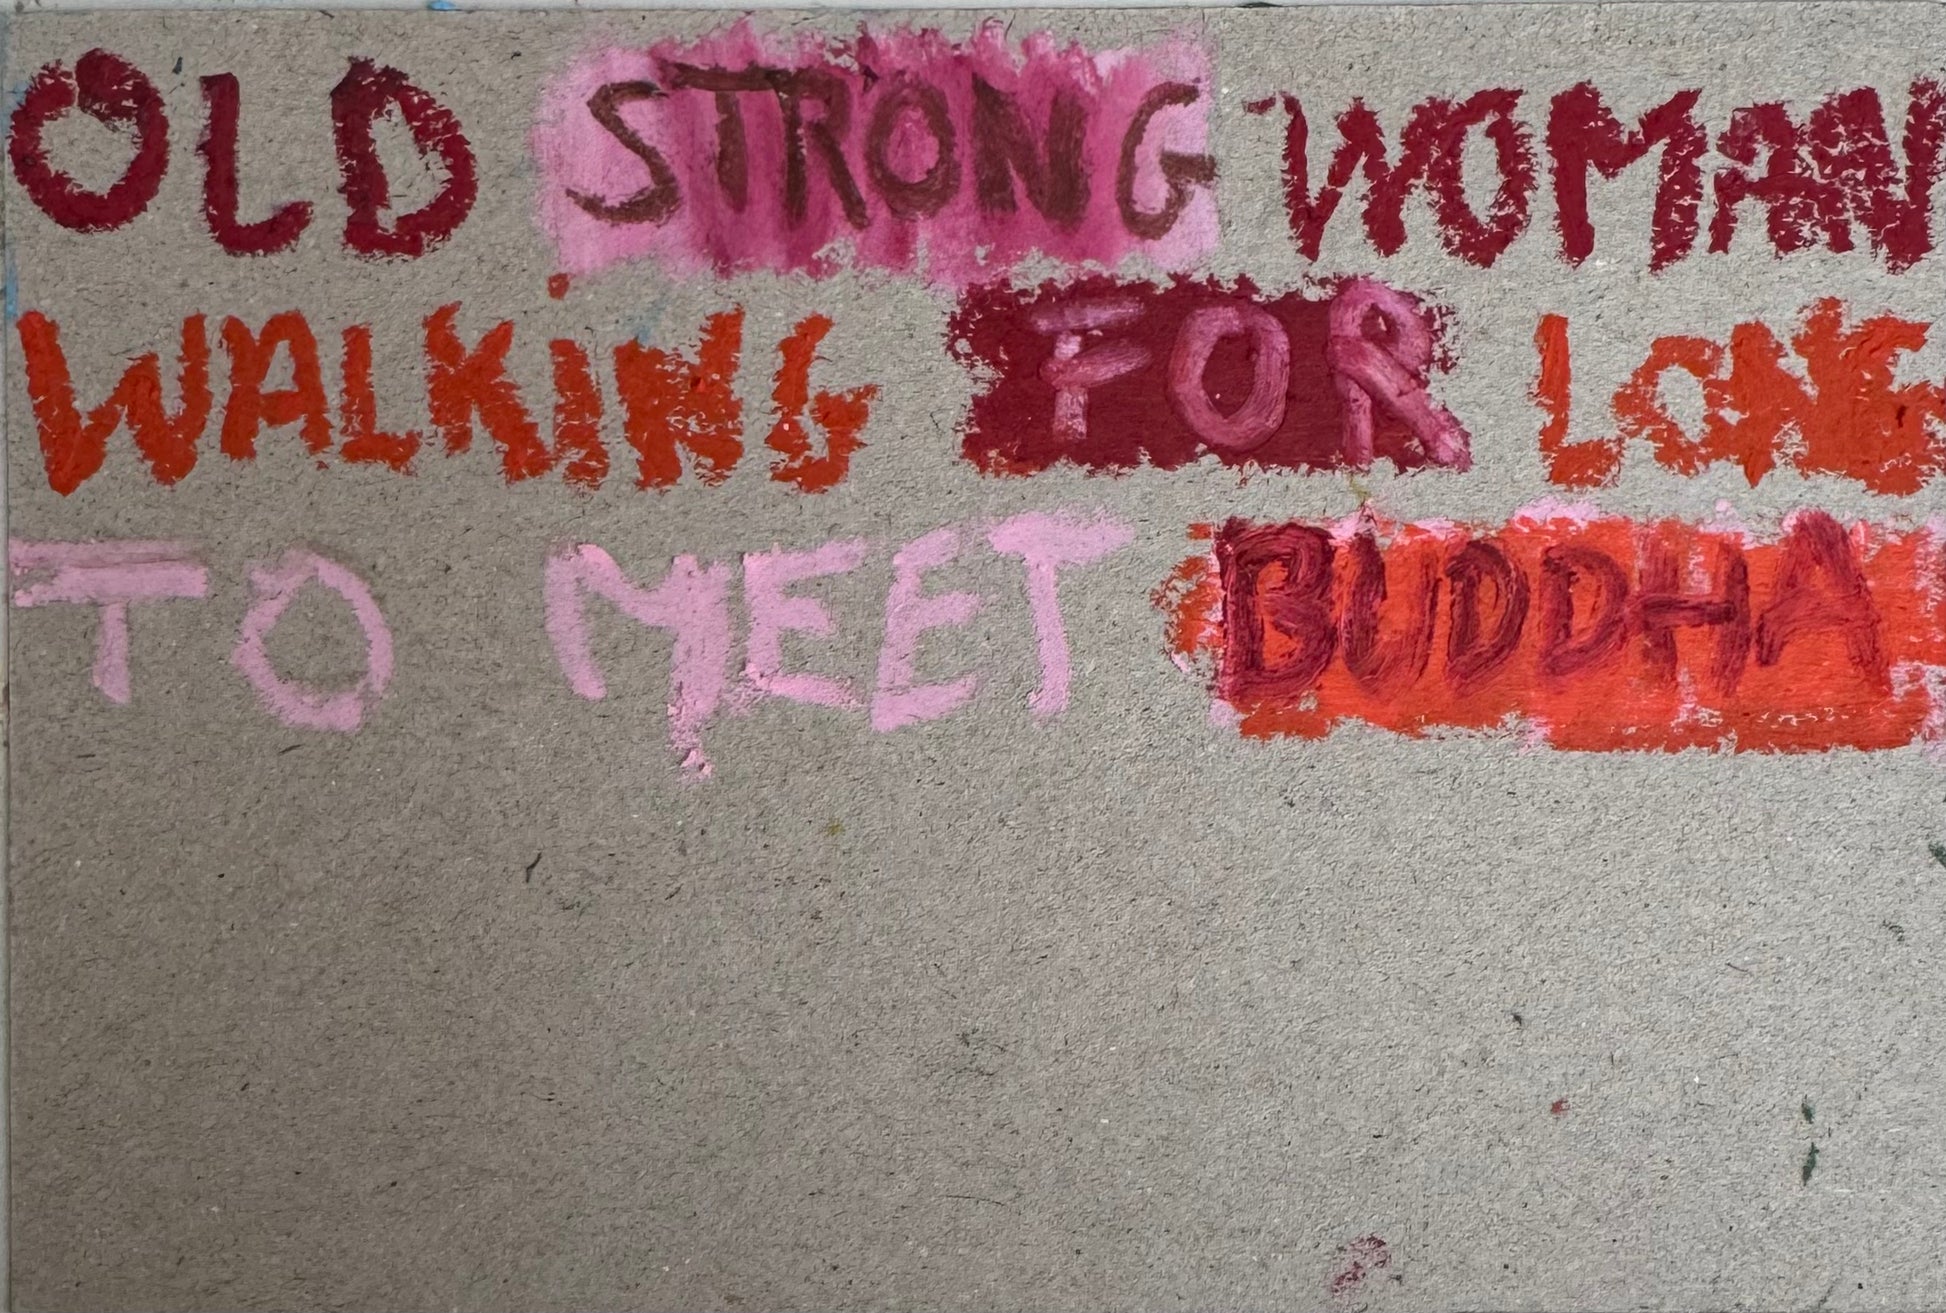 OLD STRONG WOMAN
WALKiNG FOR LONG
TO MEET BUDDHA